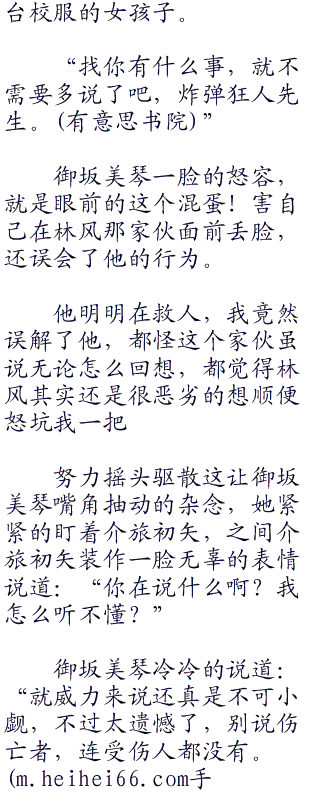 台校服的女孩子。
“找你有什么事，就不
需要多说了吧，炸弹狂人先
生。(有意思书院)”
御坂美琴一脸的怒容，
就是眼前的这个混蛋！害自
己在林风那家伙面前丢脸，
还误会了他的行为。
他明明在救人，我竟然
误解了他，都怪这个家伙虽
说无论怎么回想，都觉得林
风其实还是很恶劣的想顺便
怒坑我一把
努力摇头驱散这让御坂
美琴嘴角抽动的杂念，她紧
紧的盯着介旅初矢，之间介
旅初矢装作一脸无辜的表情
说道：“你在说什么啊？我
怎么听不懂？”
御坂美琴冷冷的说道：
“就威力来说还真是不可小
觑，不过太遗憾了，别说伤
亡者，连受伤人都没有。
(m.heihei66.com手